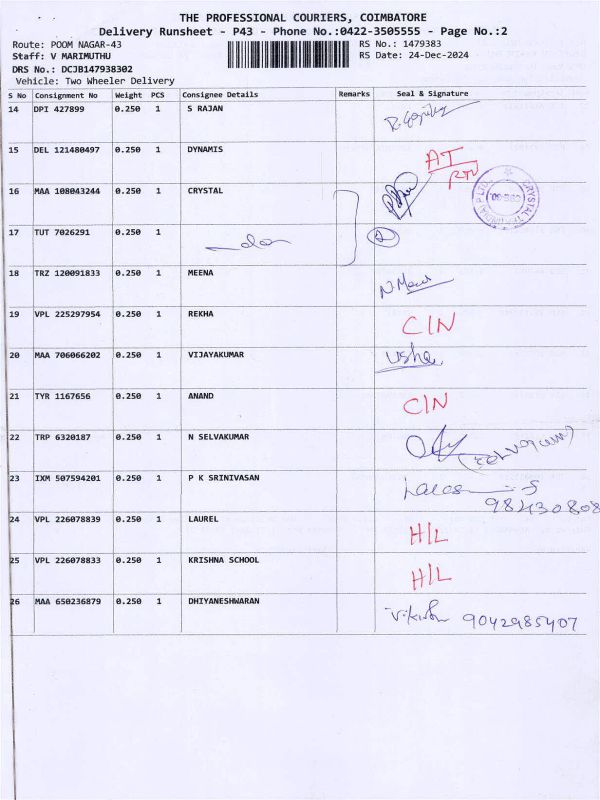 THE PROFESSIONAL COURIERS, COIMBATORE
Delivery Runsheet - P43 - Phone No.:0422-3505555 - Page No.:2
Route: POOM NAGAR-43
RS No.: 1479383
Staff: V MARIMUTHU
RS Date: 24-Dec-2024
DRS No.: DCJB147938302
Vehicle: Two Wheeler Delivery
S No Consignment No Weight PCS Consignee Details Remarks Seal & Signature
14 DPI 427899 0.250 1 S RAJAN
15 DEL 121480497 0.250 1 DYNAMIS AT
16 MAA 108043244 0.250 1 CRYSTAL
17 TUT 7026291 0.250 1 do 2
18 TRZ 120091833 0.250 1 MEENA
19 VPL 225297954 0.250 1 REKHA CIN
20 MAA 706066202 0.250 1 VIJAYAKUMAR Usha
21 TYR 1167656 0.250 1 ANAND CIN
22 TRP 6320187 0.250 1 N SELVAKUMAR
23 IXM 507594201 0.250 1 P K SRINIVASAN
24 VPL 226078839 0.250 1 LAUREL H/L
25 VPL 226078833 0.250 1 KRISHNA SCHOOL H/L
26 MAA 650236879 0.250 1 DHIYANESHWARAN 9042985407